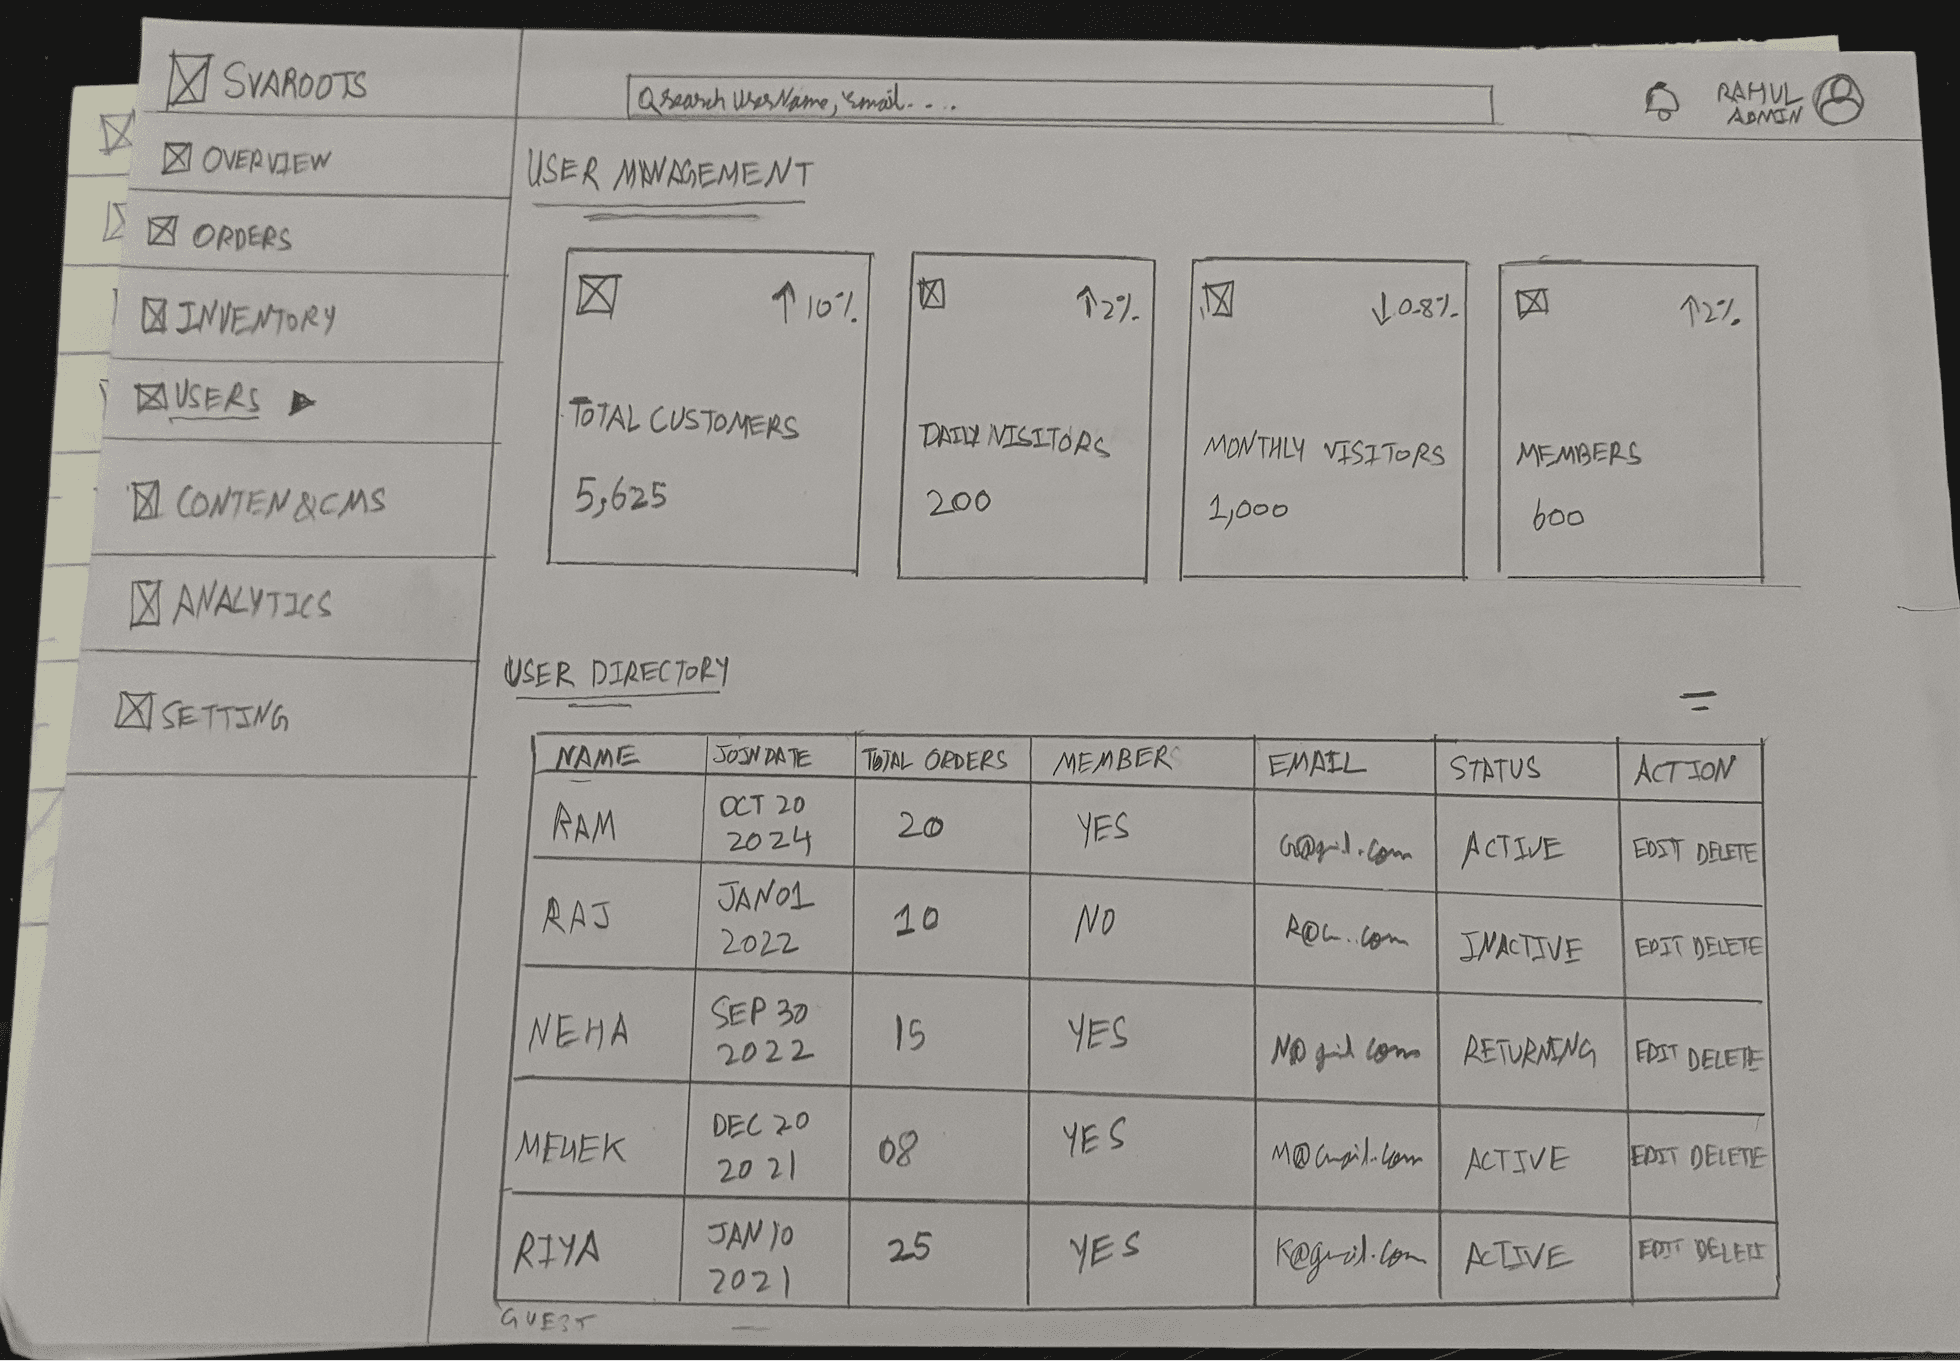 SVAROOTS
Search UserName, Email....
RAHUL
ADMIN
OVERVIEW
ORDERS
INVENTORY
USERS
CONTEN & CMS
ANALYTICS
SETTING
USER MANAGEMENT
↑ 10%
TOTAL CUSTOMERS
5,625
↑ 2%
DAILY VISITORS
200
↓ 0.8%
MONTHLY VISITORS
1,000
↑ 2%
MEMBERS
600
USER DIRECTORY
NAME JOIN DATE TOTAL ORDERS MEMBER EMAIL STATUS ACTION
RAM OCT 20 2024 20 YES ACTIVE EDIT DELETE
RAJ JAN 01 2022 10 NO INACTIVE EDIT DELETE
NEHA SEP 30 2022 15 YES RETURNING EDIT DELETE
DEC 20 2021 08 YES ACTIVE EDIT DELETE
RIYA JAN 10 2021 25 YES K@gmail.com ACTIVE EDIT DELETE
GUEST